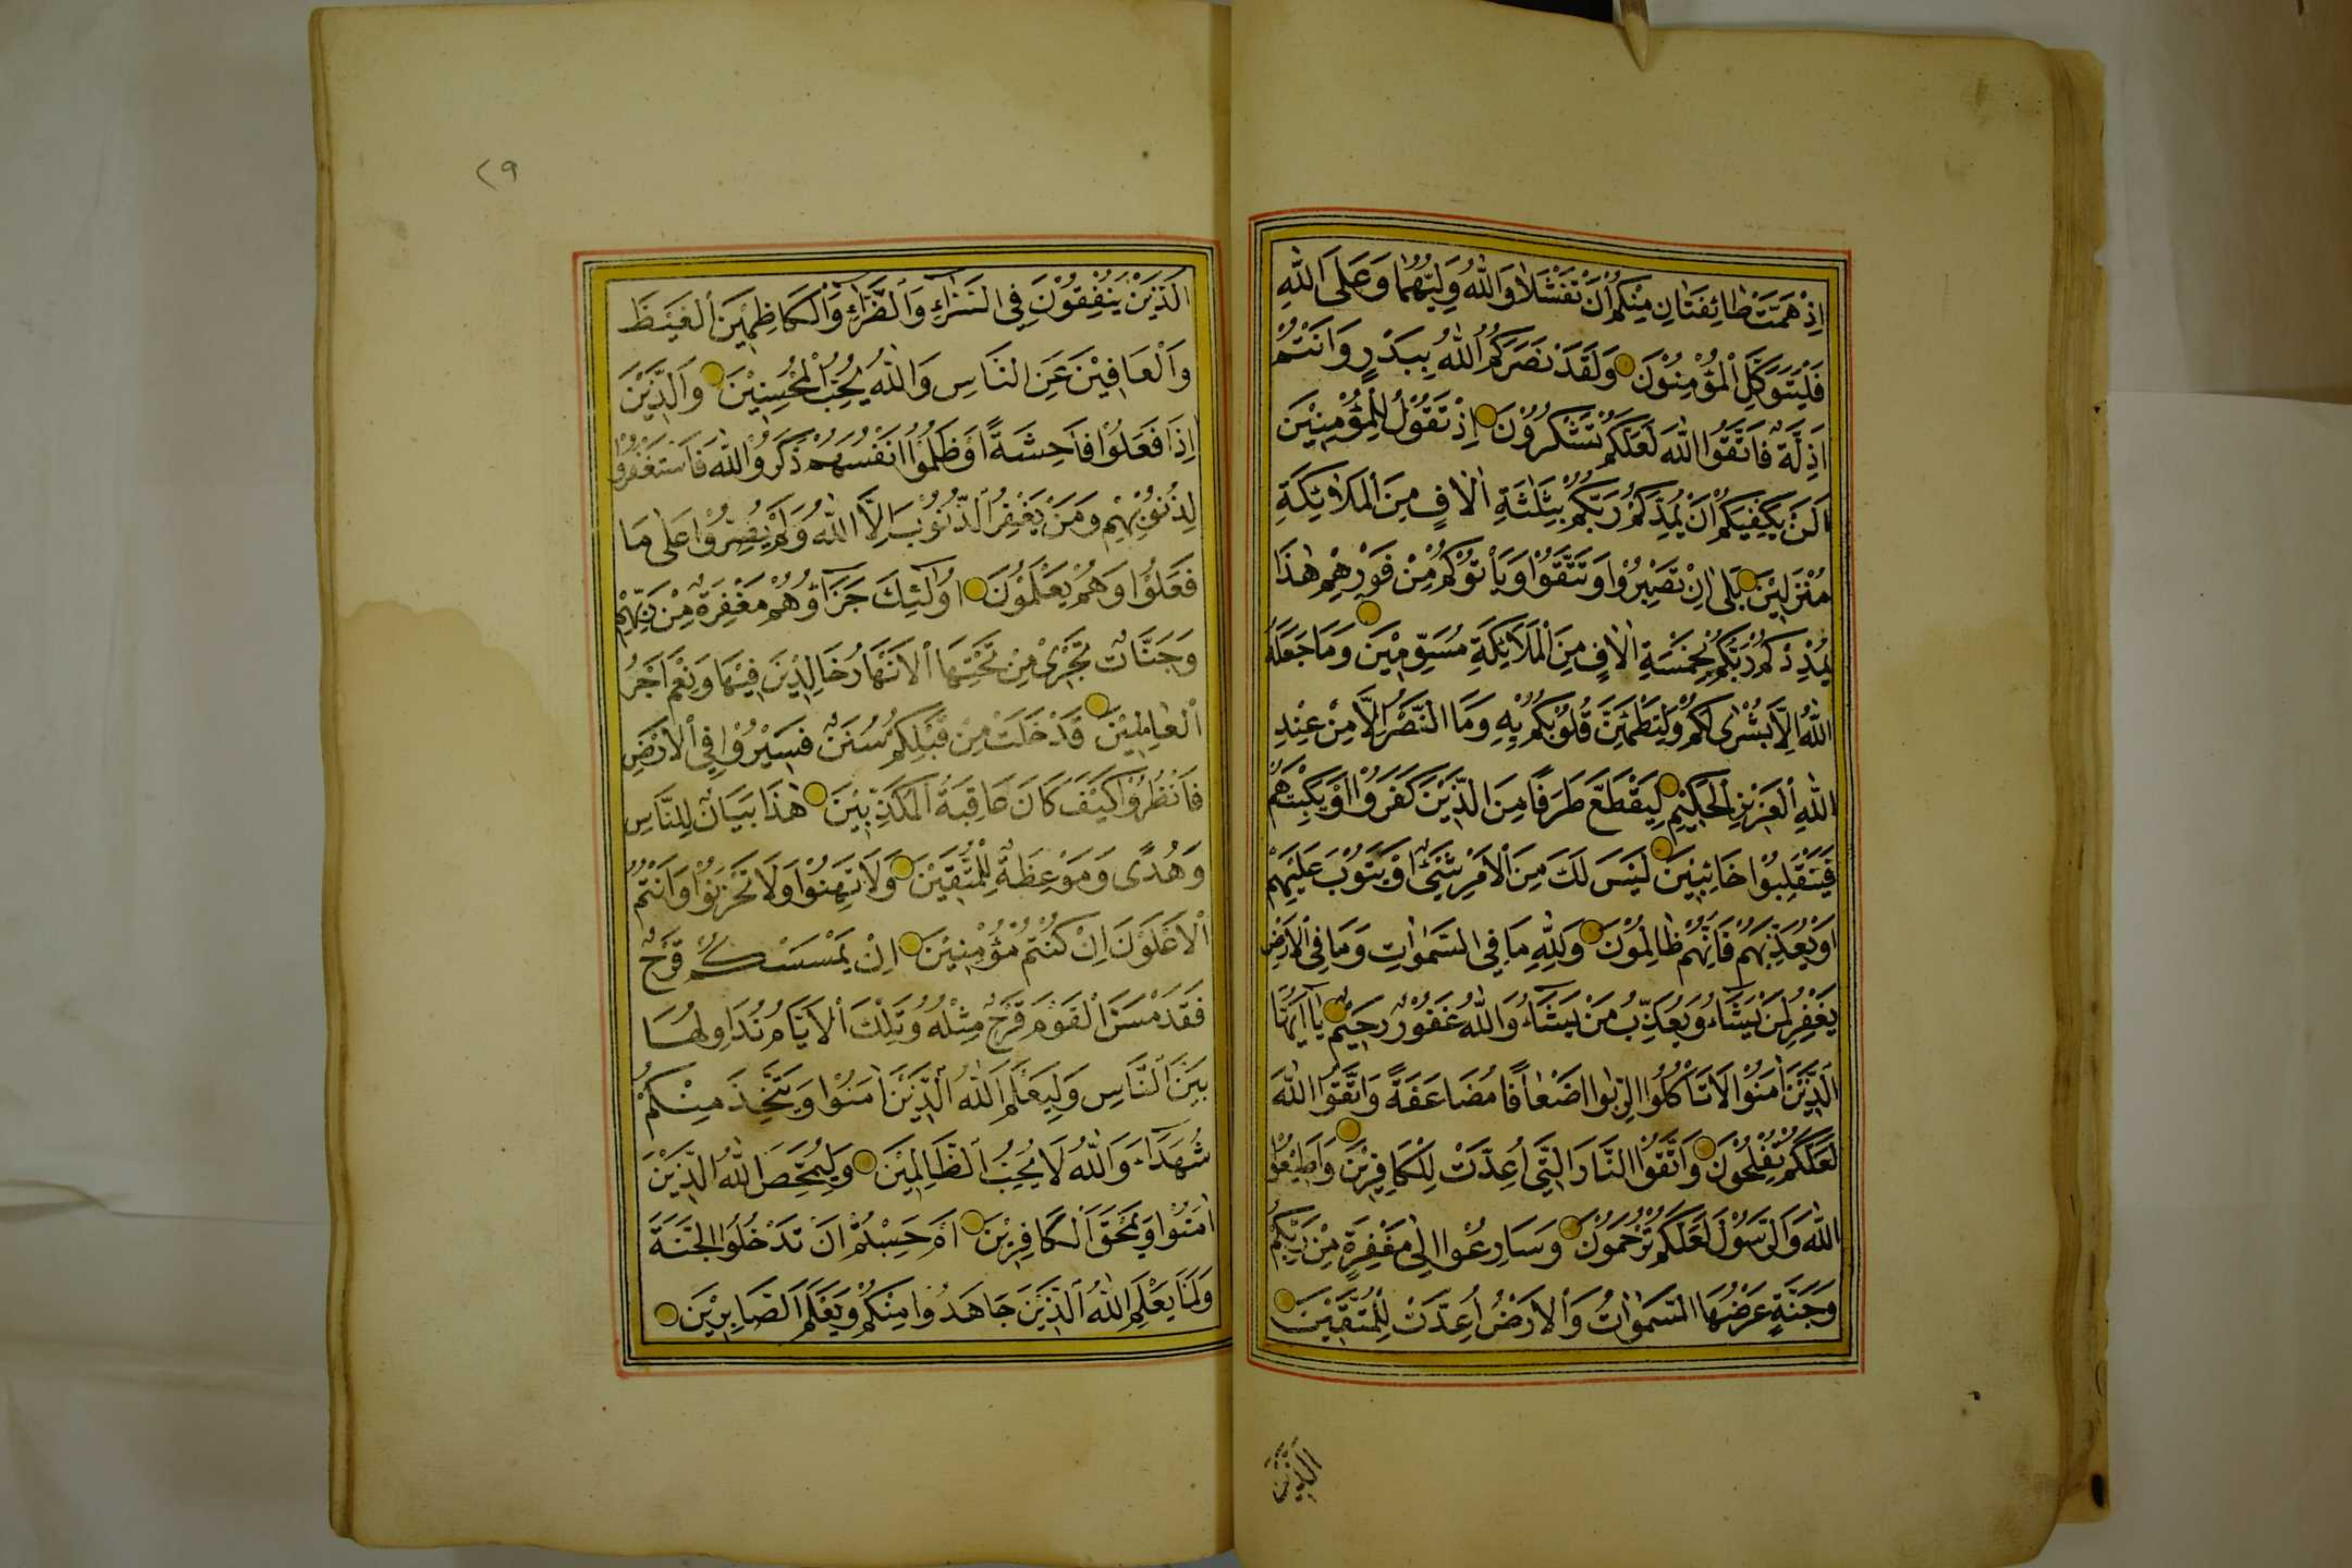 اِذْ هَمَّتْ طَائِفَتَانِ مِنْكُمْ اَنْ تَفْشَلَا وَاللّٰهُ وَلِيُّهُمَا وَعَلَى اللّٰهِ
فَلْيَتَوَكَّلِ الْمُؤْمِنُوْنَ وَلَقَدْ نَصَرَكُمُ اللّٰهُ بِبَدْرٍ وَاَنْتُمْ
اَذِلَّةٌ فَاتَّقُوا اللّٰهَ لَعَلَّكُمْ تَشْكُرُوْنَ اِذْ تَقُوْلُ لِلْمُؤْمِنِيْنَ
اَلَنْ يَكْفِيَكُمْ اَنْ يُمِدَّكُمْ رَبُّكُمْ بِثَلٰثَةِ اٰلَافٍ مِنَ الْمَلَائِكَةِ
مُنْزَلِيْنَ بَلٰى اِنْ تَصْبِرُوْا وَتَتَّقُوْا وَيَأْتُوْكُمْ مِنْ فَوْرِهِمْ هٰذَا
يُمْدِدْكُمْ رَبُّكُمْ بِخَمْسَةِ اٰلَافٍ مِنَ الْمَلَائِكَةِ مُسَوِّمِيْنَ وَمَا جَعَلَهُ
اللّٰهُ اِلَّا بُشْرٰى لَكُمْ وَلِتَطْمَئِنَّ قُلُوْبُكُمْ بِهِ وَمَا النَّصْرُ اِلَّا مِنْ عِنْدِ
اللّٰهِ الْعَزِيْزِ الْحَكِيْمِ لِيَقْطَعَ طَرَفًا مِنَ الَّذِيْنَ كَفَرُوْا اَوْ يَكْبِتَهُمْ
فَيَنْقَلِبُوْا خَائِبِيْنَ لَيْسَ لَكَ مِنَ الْاَمْرِ شَيْءٌ اَوْ يَتُوْبَ عَلَيْهِمْ
اَوْ يُعَذِّبَهُمْ فَاِنَّهُمْ ظَالِمُوْنَ وَلِلّٰهِ مَا فِي السَّمٰوَاتِ وَمَا فِي الْاَرْضِ
يَغْفِرُ لِمَنْ يَشَاءُ وَيُعَذِّبُ مَنْ يَشَاءُ وَاللّٰهُ غَفُوْرٌ رَحِيْمٌ يَا اَيُّهَا
الَّذِيْنَ اٰمَنُوْا لَا تَأْكُلُوا الرِّبٰوا اَضْعَافًا مُضَاعَفَةً وَاتَّقُوا اللّٰهَ
لَعَلَّكُمْ تُفْلِحُوْنَ وَاتَّقُوا النَّارَ الَّتِيْ اُعِدَّتْ لِلْكَافِرِيْنَ وَاَطِيْعُوا
اللّٰهَ وَالرَّسُوْلَ لَعَلَّكُمْ تُرْحَمُوْنَ وَسَارِعُوْا اِلٰى مَغْفِرَةٍ مِنْ رَبِّكُمْ
وَجَنَّةٍ عَرْضُهَا السَّمٰوَاتُ وَالْاَرْضُ اُعِدَّتْ لِلْمُتَّقِيْنَ
الَّذِيْنَ
٢٩
الَّذِيْنَ يُنْفِقُوْنَ فِي السَّرَّاءِ وَالضَّرَّاءِ وَالْكَاظِمِيْنَ الْغَيْظَ
وَالْعَافِيْنَ عَنِ النَّاسِ وَاللّٰهُ يُحِبُّ الْمُحْسِنِيْنَ وَالَّذِيْنَ
اِذَا فَعَلُوْا فَاحِشَةً اَوْ ظَلَمُوْا اَنْفُسَهُمْ ذَكَرُوا اللّٰهَ فَاسْتَغْفَرُوْا
لِذُنُوْبِهِمْ وَمَنْ يَغْفِرُ الذُّنُوْبَ اِلَّا اللّٰهُ وَلَمْ يُصِرُّوْا عَلٰى مَا
فَعَلُوْا وَهُمْ يَعْلَمُوْنَ اُولٰئِكَ جَزَاؤُهُمْ مَغْفِرَةٌ مِنْ رَبِّهِمْ
وَجَنَّاتٌ تَجْرِيْ مِنْ تَحْتِهَا الْاَنْهَارُ خَالِدِيْنَ فِيْهَا وَنِعْمَ اَجْرُ
الْعَامِلِيْنَ قَدْ خَلَتْ مِنْ قَبْلِكُمْ سُنَنٌ فَسِيْرُوْا فِي الْاَرْضِ
فَانْظُرُوْا كَيْفَ كَانَ عَاقِبَةُ الْمُكَذِّبِيْنَ هٰذَا بَيَانٌ لِلنَّاسِ
وَهُدًى وَمَوْعِظَةٌ لِلْمُتَّقِيْنَ وَلَا تَهِنُوْا وَلَا تَحْزَنُوْا وَاَنْتُمُ
الْاَعْلَوْنَ اِنْ كُنْتُمْ مُؤْمِنِيْنَ اِنْ يَمْسَسْكُمْ قَرْحٌ
فَقَدْ مَسَّ الْقَوْمَ قَرْحٌ مِثْلُهُ وَتِلْكَ الْاَيَّامُ نُدَاوِلُهَا
بَيْنَ النَّاسِ وَلِيَعْلَمَ اللّٰهُ الَّذِيْنَ اٰمَنُوْا وَيَتَّخِذَ مِنْكُمْ
شُهَدَاءَ وَاللّٰهُ لَا يُحِبُّ الظَّالِمِيْنَ وَلِيُمَحِّصَ اللّٰهُ الَّذِيْنَ
اٰمَنُوْا وَيَمْحَقَ الْكَافِرِيْنَ اَمْ حَسِبْتُمْ اَنْ تَدْخُلُوا الْجَنَّةَ
وَلَمَّا يَعْلَمِ اللّٰهُ الَّذِيْنَ جَاهَدُوْا مِنْكُمْ وَيَعْلَمَ الصَّابِرِيْنَ